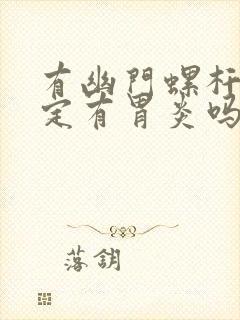 有幽門螺杆
定有胃炎吗
落鈅